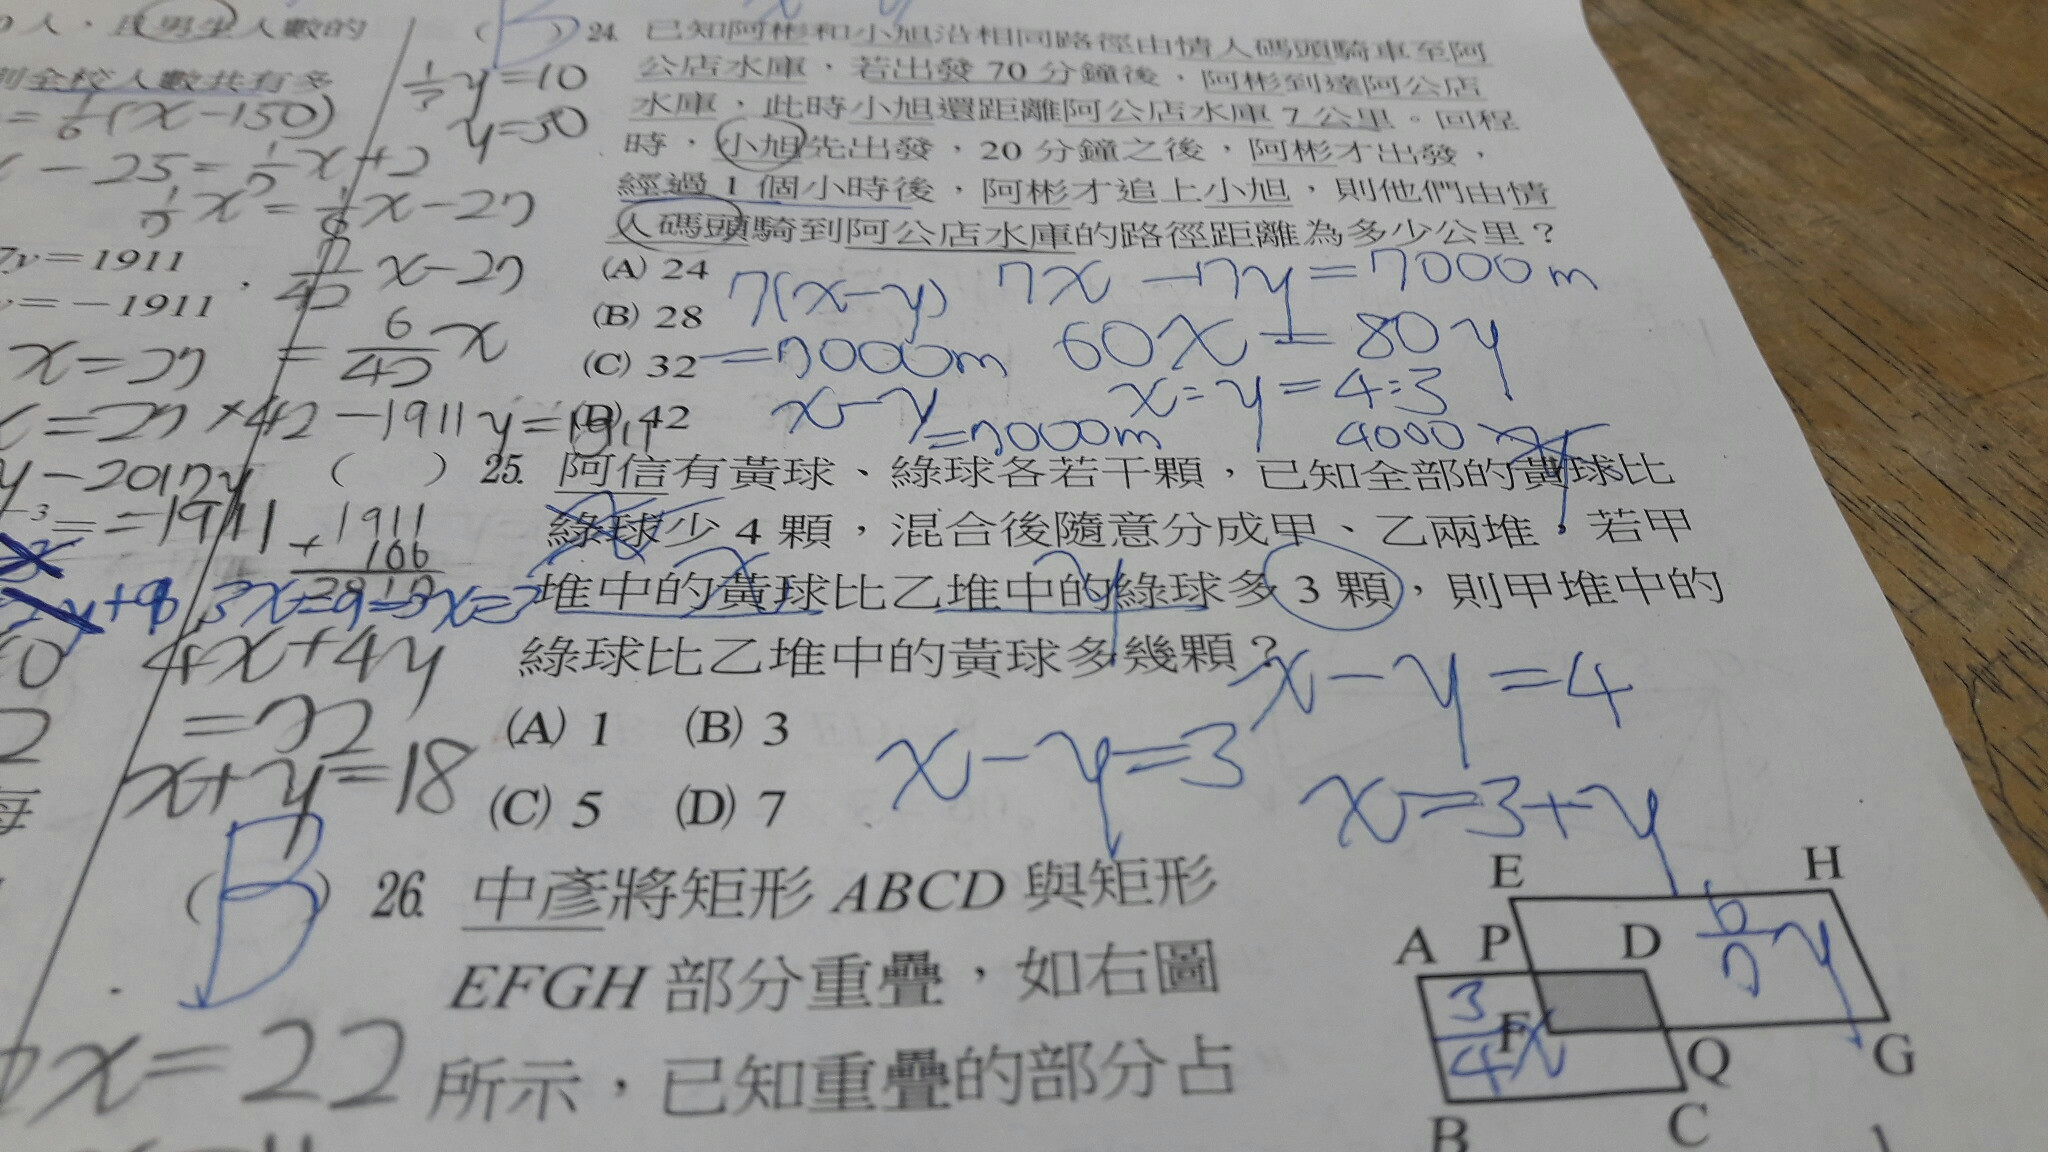 人，且男生人數的
則全校人數共有多
(x-150)
7y=1911
=-1911
x=
y=10
( B ) 24. 已知阿彬和小旭沿相同路徑由情人碼頭騎車至阿
公店水庫，若出發 70 分鐘後，阿彬到達阿公店
水庫，此時小旭還距離阿公店水庫 7 公里。回程
時，小旭先出發，20 分鐘之後，阿彬才出發，
經過 1 個小時後，阿彬才追上小旭，則他們由情
人碼頭騎到阿公店水庫的路徑距離為多少公里？
(A) 24
(B) 28
(C) 32
(D) 42
7(x-y)
60x=80y
x=y=4:3
4000
( ) 25. 阿信有黃球、綠球各若干顆，已知全部的黃球比
綠球少 4 顆，混合後隨意分成甲、乙兩堆，若甲
堆中的黃球比乙堆中的綠球多 3 顆，則甲堆中的
綠球比乙堆中的黃球多幾顆？
(A) 1 (B) 3
(C) 5 (D) 7
x-y=4
x-y=3
x=3+y
1911
+ 106
4x+4y
x+y=18
x=22
( B ) 26. 中彥將矩形 ABCD 與矩形
EFGH 部分重疊，如右圖
所示，已知重疊的部分占
E H
A P D
F Q G
B C